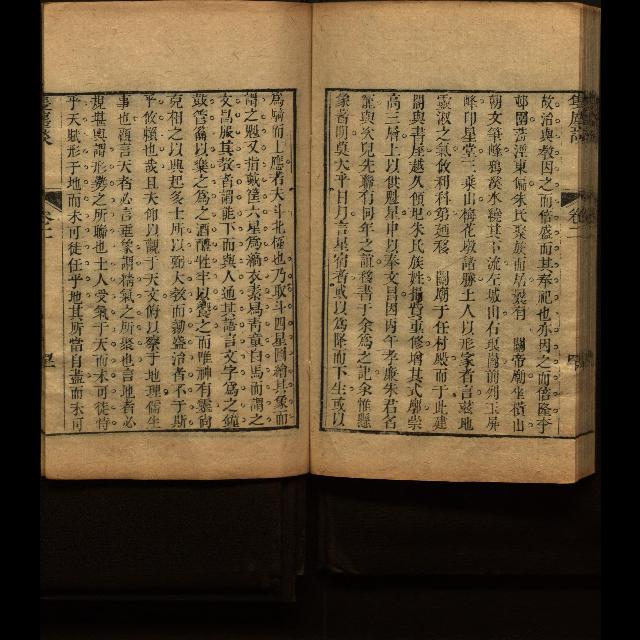 故治與教因之而倍盛而其奉祀也亦因之而倍隆李
邨園蓉涇東偏朱氏聚族而居溪有　關帝廟坐橫山
朝文筆峰鴉溪水繞其下流左城山右硯閣前列玉屏
峰印星堂三乘山梅花墩諸勝土人以形家者言茲地
靈淑之氣故利科第廼移　關廟于任村嚴而于此建
閣與書屋越久傾圮朱氏族姓捐貲重修增其式廓崇
高三層上以供魁星中以奉文昌因丙午孝廉朱君者
範與次兒先聯有同年之誼移書于余為之記余惟懸
象著明莫大乎日月言星宿者或以為降而下生或以
為騎而上應若天斗北樞也乃取斗四星圖繪其象而
謂之魁又指戴筐六星為滿衣素馬青童白馬而謂之
文昌服其教者謂能下而與人通其語言文字為之鐘
鼓管籥以樂之為之酒醴牲牢以饗之而唯神有靈尚
克相之以興起多士所以弼大教而勷盛治者不于斯
乎攸賴也哉且夫仰以觀于天文俯以察于地理儒生
事也酒言天者必言垂象謂精氣之所聚也言地者必
規堪輿謂形勢之所聯也士人受氣于天而未可徒恃
乎天賦形于地而未可徒任乎地其所當自盡而未可
卷二